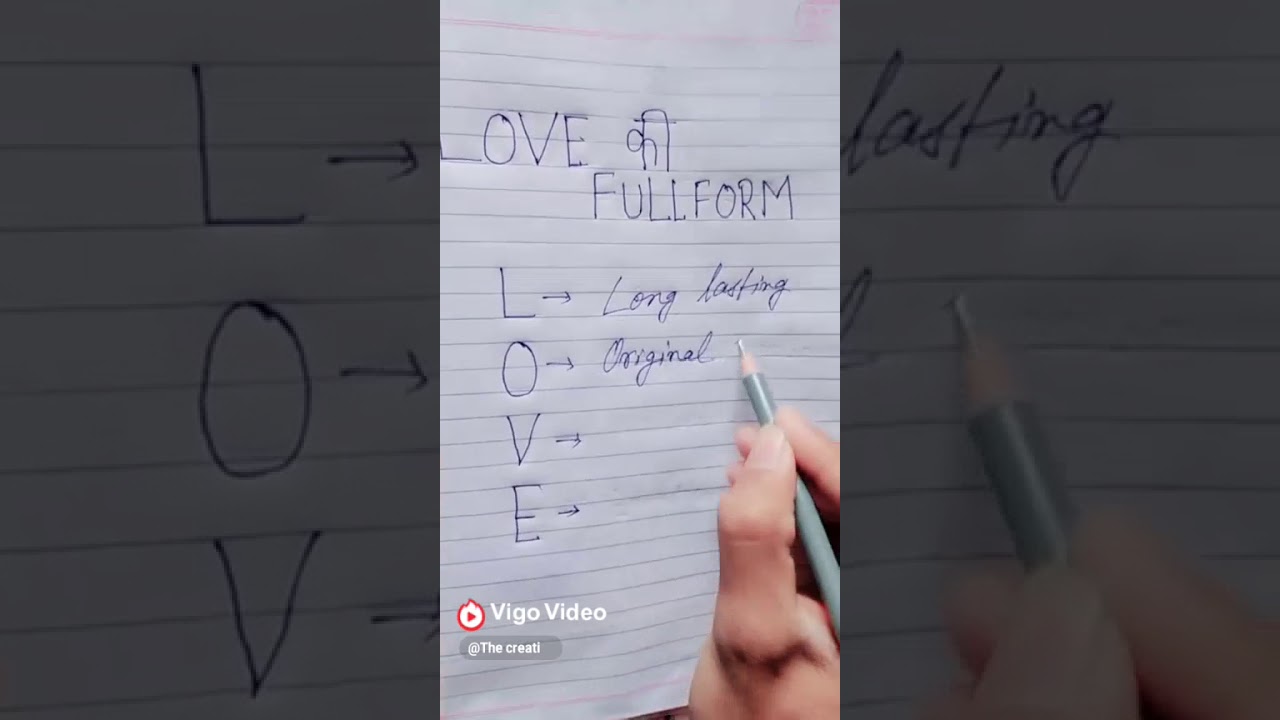 LOVE की
FULLFORM
L → Long lasting
O → Original
V →
E →
Vigo Video
@The creati
L →
lasting
O →
V →